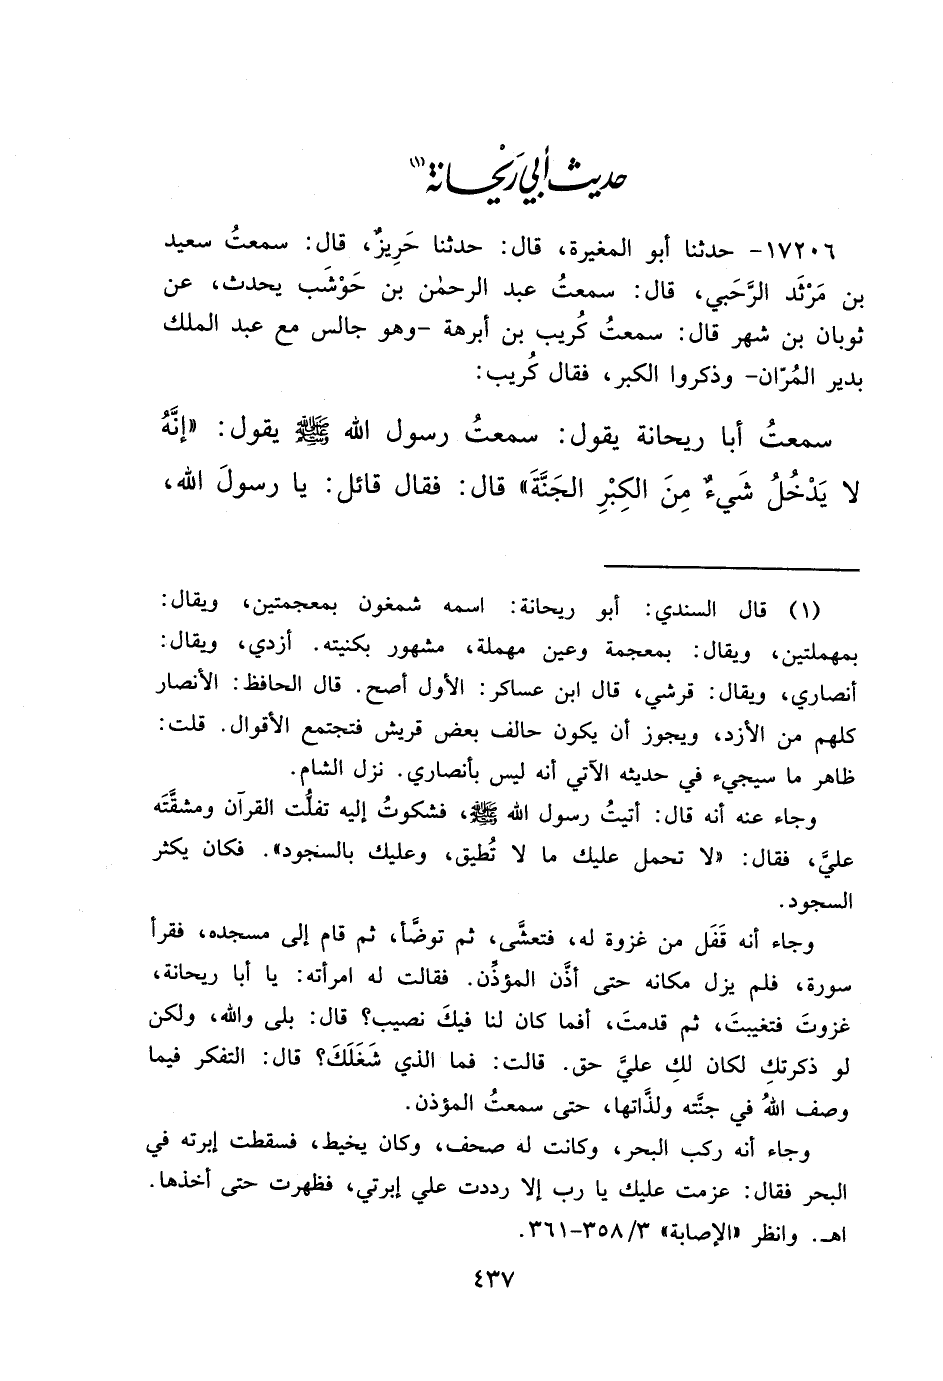 حديث أبي ريحانة(١)
١٧٢٠٦- حدثنا أبو المغيرة، قال: حدثنا حَرِيزٌ، قال: سمعتُ سعيد
بن مَرْثَد الرَّحَبي، قال: سمعتُ عبد الرحمٰن بن حَوْشَب يحدث، عن
ثوبان بن شهر قال: سمعتُ كُريب بن أبرهة -وهو جالس مع عبد الملك
بدير المُرّان- وذكروا الكبر، فقال كُريب:
سمعتُ أبا ريحانة يقول: سمعتُ رسول الله ﷺ يقول: «إنَّهُ
لا يَدْخُلُ شَيءٌ مِنَ الكِبْرِ الجَنَّةَ» قال: فقال قائل: يا رسولَ الله،
(١) قال السندي: أبو ريحانة: اسمه شمغون بمعجمتين، ويقال:
بمهملتين، ويقال: بمعجمة وعين مهملة، مشهور بكنيته. أزدي، ويقال:
أنصاري، ويقال: قرشي، قال ابن عساكر: الأول أصح. قال الحافظ: الأنصار
كلهم من الأزد، ويجوز أن يكون حالف بعض قريش فتجتمع الأقوال. قلت:
ظاهر ما سيجيء في حديثه الآتي أنه ليس بأنصاري. نزل الشام.
وجاء عنه أنه قال: أتيتُ رسول الله ﷺ، فشكوتُ إليه تفلُّت القرآن ومشقَّتَه
عليَّ، فقال: «لا تحمل عليك ما لا تُطيق، وعليك بالسجود». فكان يكثر
السجود.
وجاء أنه قَفَل من غزوة له، فتعشَّى، ثم توضَّأ، ثم قام إلى مسجده، فقرأ
سورة، فلم يزل مكانه حتى أذَّن المؤذِّن. فقالت له امرأته: يا أبا ريحانة،
غزوتَ فتغيبتَ، ثم قدمتَ، أفما كان لنا فيكَ نصيب؟ قال: بلى والله، ولكن
لو ذكرتكِ لكان لكِ عليَّ حق. قالت: فما الذي شَغَلَكَ؟ قال: التفكر فيما
وصف اللهُ في جنَّته ولذَّاتها، حتى سمعتُ المؤذن.
وجاء أنه ركب البحر، وكانت له صحف، وكان يخيط، فسقطت إبرته في
البحر فقال: عزمت عليك يا رب إلا رددت علي إبرتي، فظهرت حتى أخذها.
اهـ. وانظر «الإصابة» ٣/ ٣٥٨-٣٦١.
٤٣٧